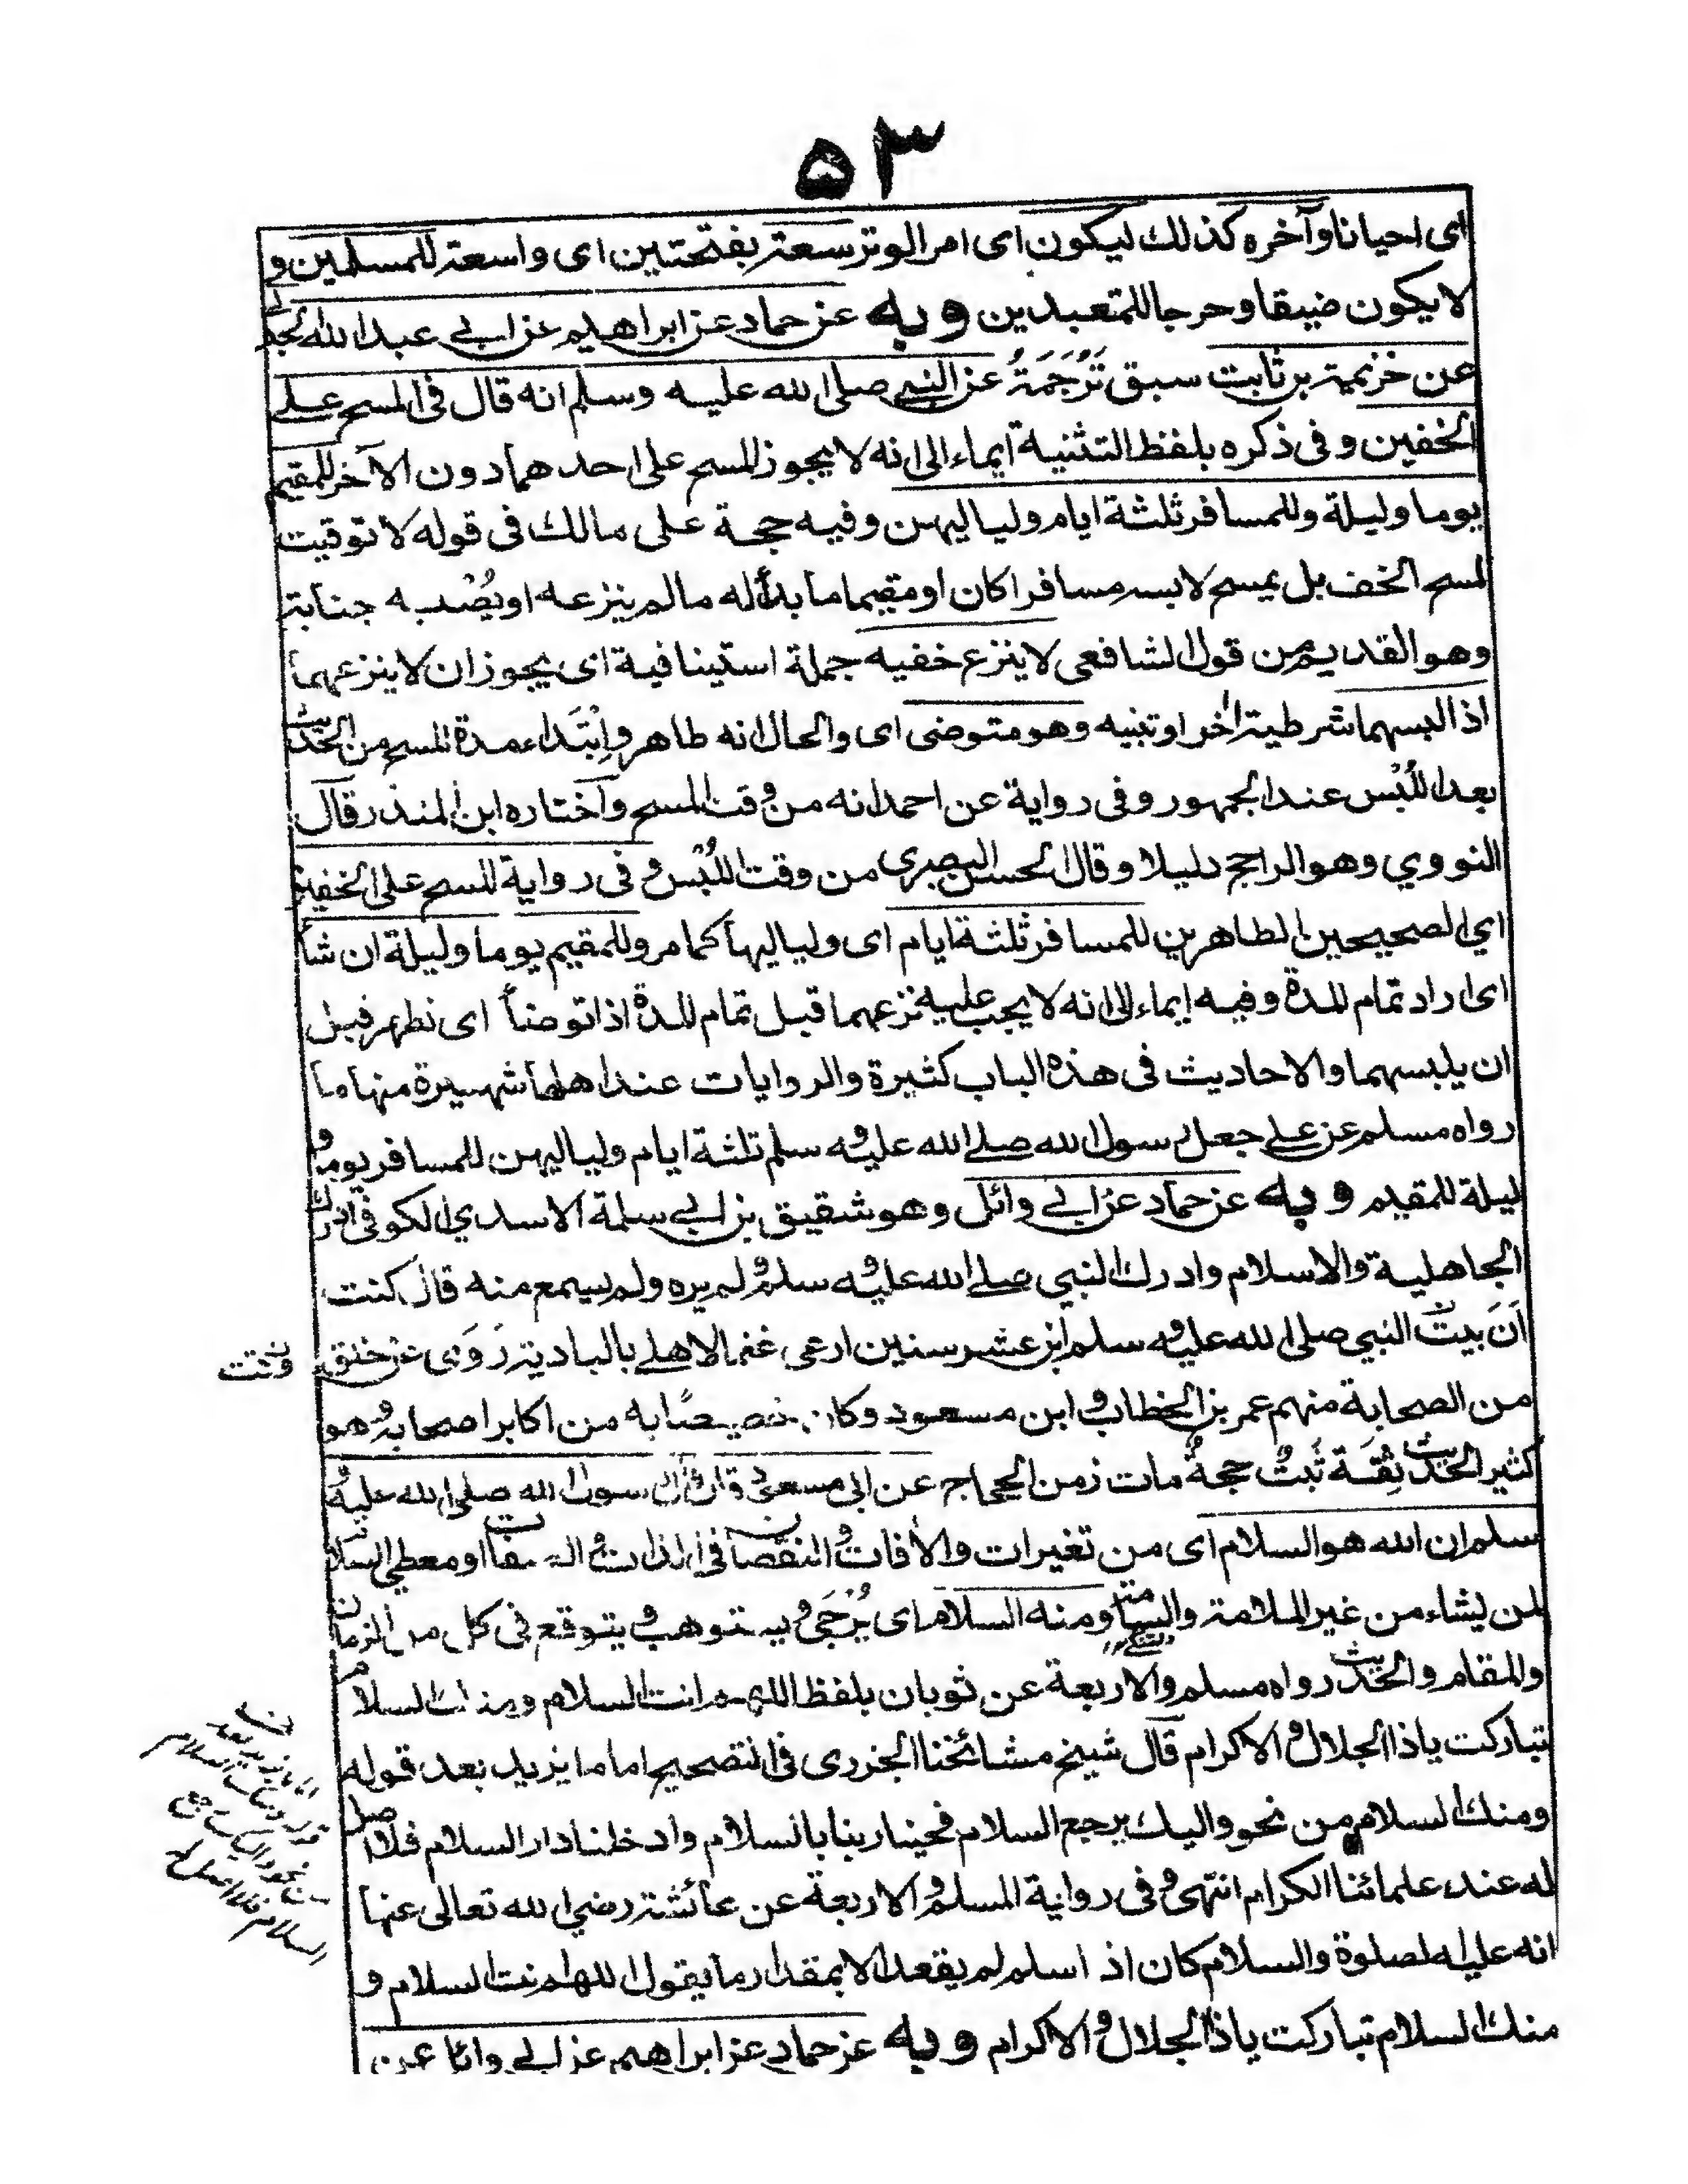 ٥٣
اى احيانا وآخره كذلك ليكون اى امر الوتر سعة بفتحتين اى واسعة للمسلمين و
لا يكون ضيقا وحرجا للمتعبدين وبه عن حماد عن ابراهيم عن ابى عبد الله الجدلى
عن خزيمة بن ثابت سبق ترجمة عن النبى صلى الله عليه وسلم انه قال فى المسح على
الخفين وفى ذكره بلفظ التثنية ايماء الى انه لا يجوز المسح على احدهما دون الآخر للمقيم
يوما وليلة وللمسافر ثلثة ايام ولياليهن وفيه حجة على مالك فى قوله لا توقيت
لمسح الخف بل يمسح لابسه مسافرا كان او مقيما ما بدأله ما لم ينزعه او يُصبه جنابة
وهو القديم من قول الشافعى لا ينزع خفيه جملة استينافية اى يجوز ان لا ينزعهما
اذا لبسهما شرطية اخر او تبنيه وهو متوضى اى والحال انه طاهر وابتداء مدة المسح من الحديث
بعد اللُبْس عند الجمهور وفى رواية عن احمد انه من وقت المسح وآختاره ابن المنذر وقال
النووي وهو الراجح دليلا وقال الحسن البصرى من وقت اللُبْس وفى رواية المسح على الخفين
اي الصحيحين الطاهرين للمسافر ثلثة ايام اى ولياليها كما مر وللمقيم يوما وليلة ان شأ
اى اراد تمام المدة وفيه ايماء الى انه لا يجب عليه نزعهما قبل تمام المدة اذا توضأ اى تطهر قبل
ان يلبسهما والاحاديث فى هذه الباب كثيرة والروايات عند اهلها شهيرة منها ما
رواه مسلم عن على جعل رسول الله صلى الله عليه وسلم ثلثة ايام ولياليهن للمسافر يوما و
ليلة للمقيم وبه عن حماد عن ابى وائل وهو شقيق بن ابى سلمة الاسدي الكوفى ادرك
الجاهلية والاسلام وادرك النبي صلى الله عليه وسلم ولم يره ولم يسمع منه قال كنت
اَنَ بيت النبي صلى الله عليه وسلم ابن عشر سنين ارعى غنما لاهلى بالبادية رَوَى عن خلق
من الصحابة منهم عمر بن الخطاب وابن مسعود وكان خصيصًا به من اكابر اصحابه وهو
كثير الحديث ثِقَة ثَبتٌ حجةٌ مات زمن الحجاج عن ابى مسعود قال رسول الله صلى الله عليه و
سلم ان الله هو السلام اى من تغيرات والأفات والنقصان فى الذات و الصفات او معطى السلامة
لمن يشاء من غير الملامة والسآمة ومنه السلام اى يُرْجَى ويستوهب ويتوقع فى كل من الزمان
والمقام والحديث رواه مسلم والاربعة عن ثوبان بلفظ اللهم انت السلام ومنك السلام
تباركت ياذا الجلال والاكرام قال شيخ مشائخنا الجزرى فى التصحيح اما ما يزيد بعد قوله
ومنك السلام من نحو واليك يرجع السلام فحينا ربنا بالسلام وادخلنا دار السلام فلا اصل
له عند علمائنا الكرام انتهى وفى رواية المسلم والاربعة عن عائشة رضي الله تعالى عنها
انه عليه الصلوة والسلام كان اذا سلم لم يقعد الا بمقدار ما يقول اللهم انت السلام و
منك السلام تباركت ياذا الجلال والاكرام وبه عن حماد عن ابراهيم عن ابى وائل عن